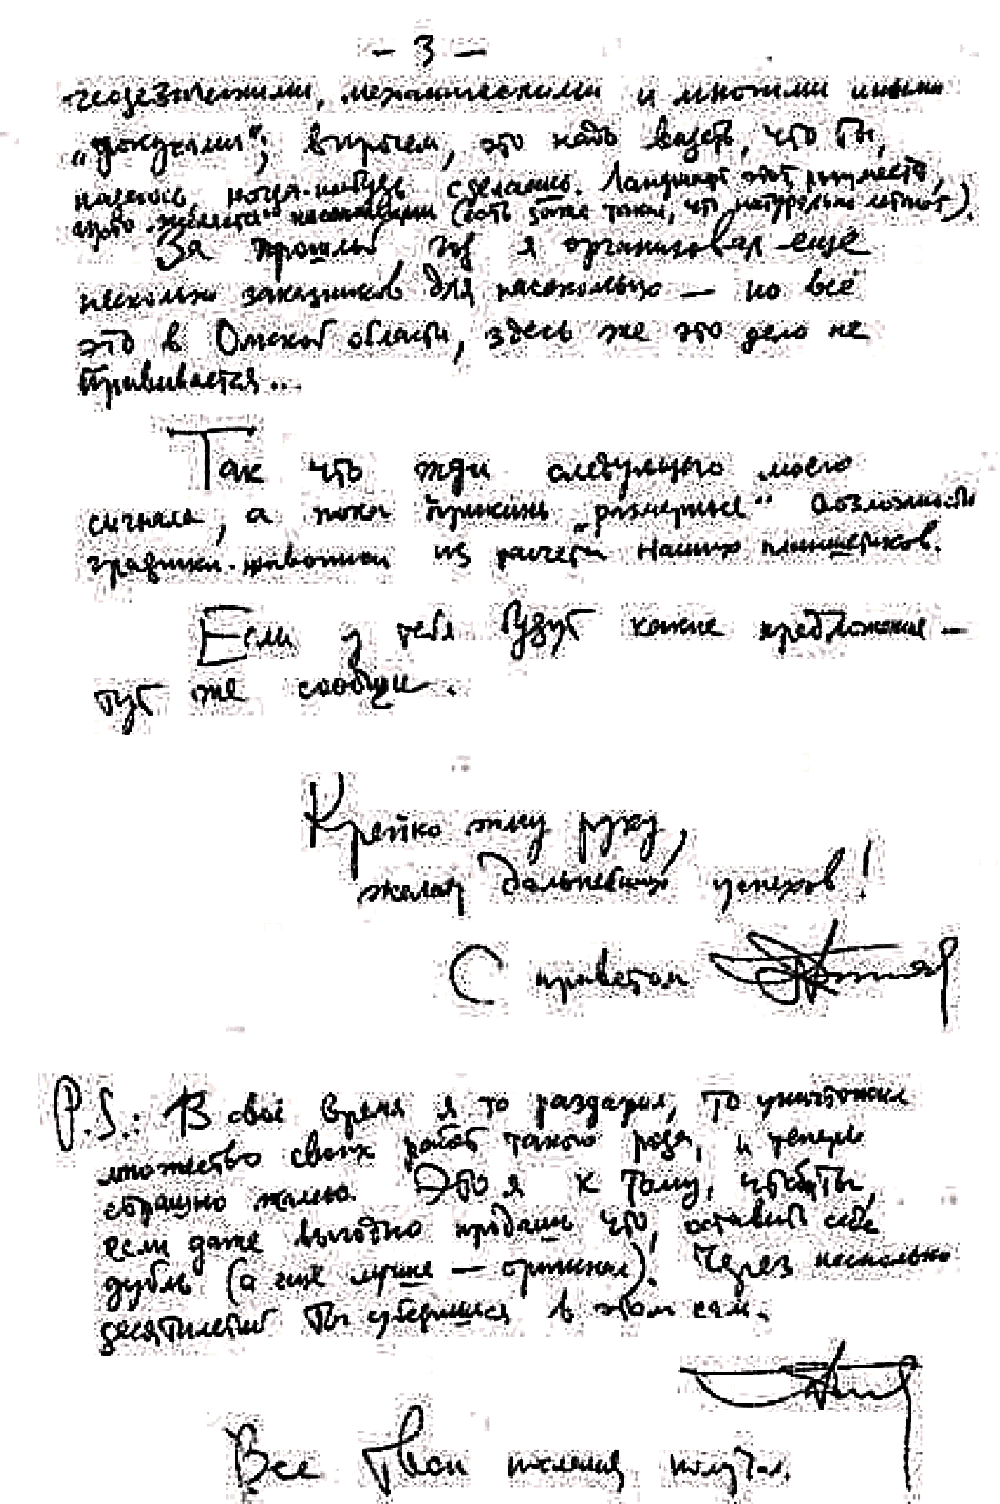 - 3 -
механическими и многими иными
"докуками"; впрочем, это надо видеть, что Ты,
надеюсь, когда-нибудь сделаешь. Ландшафт этот,
насекомыми (есть даже такой, что натурально летают).
За прошлый год я организовал ещё
несколько заказников для насекомых — но всё
это в Омской области, здесь же это дело не
прививается...
Так что жди следующего моего
сигнала, а пока прикинь "размерные" возможности
графики-живописи из расчёта наших планшетиков.
Если у тебя будут какие предложения —
тут же сообщи.
Крепко жму руку,
желаю дальнейших успехов!
С приветом
P.S.: В своё время я то раздарил, то уничтожил
множество своих работ такого рода, и теперь
страшно жалею. Это я к тому, чтобы Ты,
если даже выгодно продашь что, оставил себе
дубль (а ещё лучше — оригинал)! Через несколько
десятилетий Ты убедишься в этом сам.
Все Твои получил.